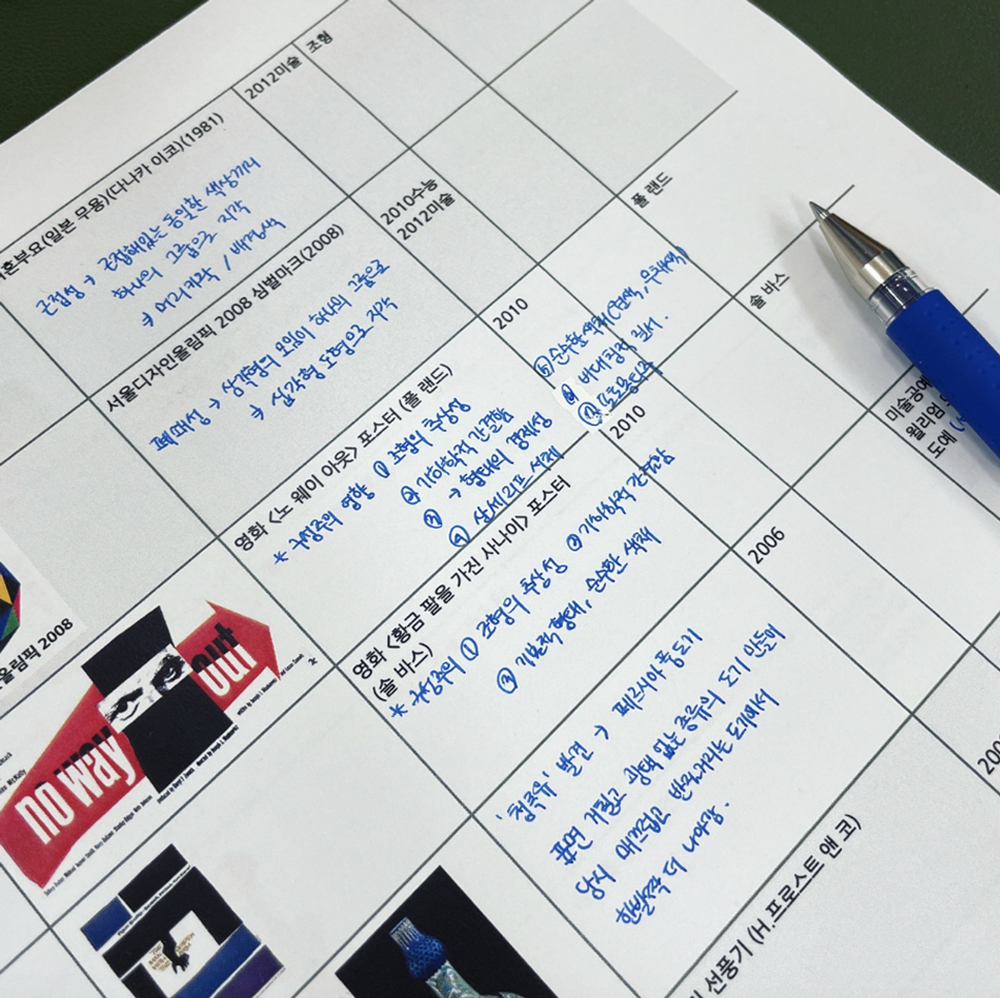 2012미술
조형
혼부요(일본 무용)(다나카 이코)(1981)
근접성 → 근접해있는 동일한 색상끼리
하나의 그룹으로 지각
→ 머리카락 / 배경색
2010수능
2012미술
서울디자인올림픽 2008 심벌마크(2008)
폐쇄성 → 삼각형의 모임이 하나의 그룹으로
→ 십각형 도형으로 지각
2010
폴 랜드
영화 <노 웨이 아웃> 포스터 (폴 랜드)
* 구성주의 영향 ① 조형의 추상성
② 기하학적 간결함
③ → 형태의 경제성
④ 산세리프 서체
⑤ 순수한 색채
⑥ 비대칭적 질서.
⑦
2010
솔 바스
영화 <황금 팔을 가진 사나이> 포스터
(솔 바스)
* 구성주의 ① 조형의 추상성 ② 기하학적 간결함
③ 기본적 형태, 순수한 색채
2006
미술공예
윌리엄
도예
'청록유' 발견 → 페르시아풍 도기
표면 거칠고 광택 없는 종류의 도기 만들던
당시 매끄럽고 반짝거리는 도기에서
한발짝 더 나아감.
선풍기 (H.프로스트 앤 코)
올림픽 2008
no way
out